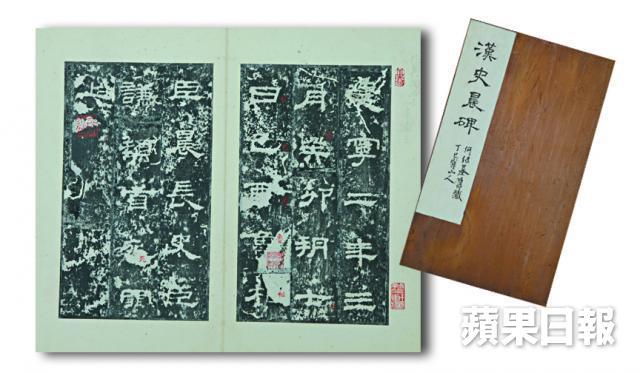 建寧二年三
月癸卯朔七
日己酉魯相
臣晨長史臣
謙頓首死罪
上
漢史晨碑
何紹基舊藏
蘋果日報